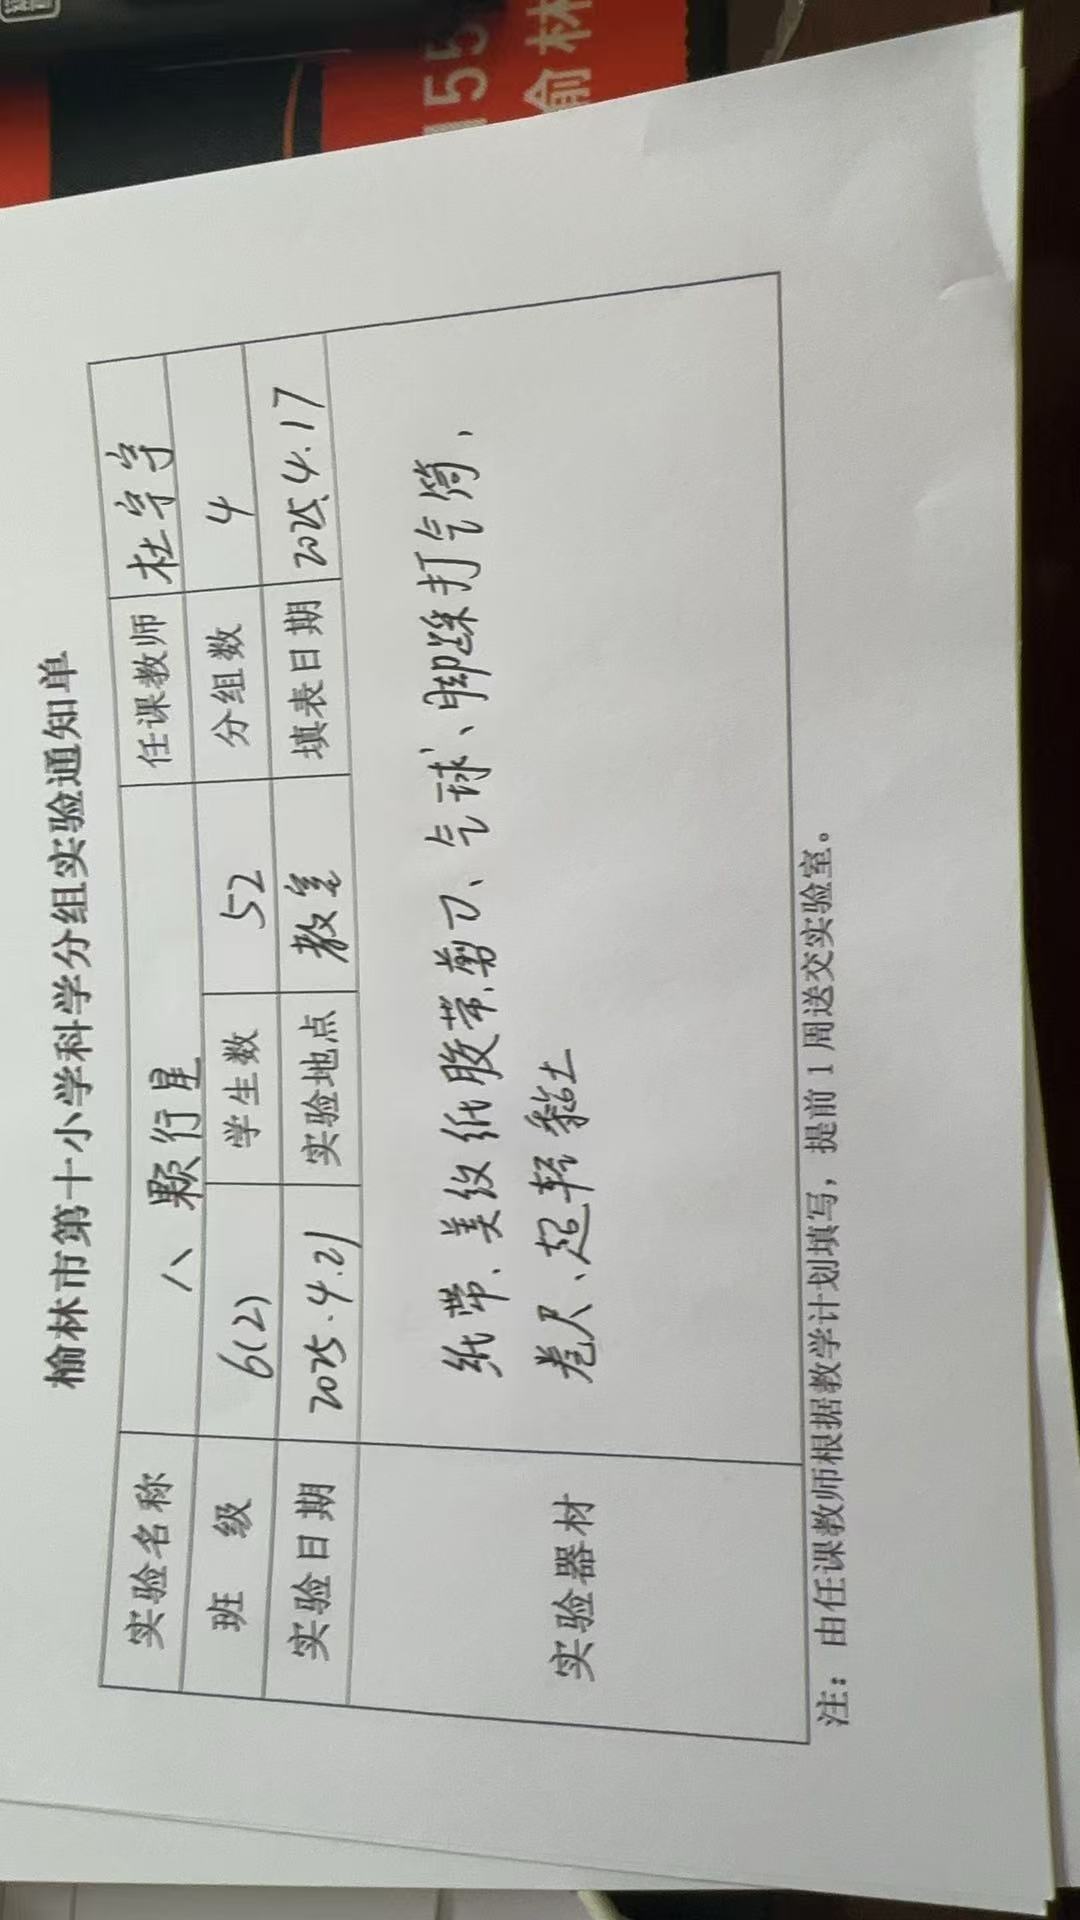 155
榆林
榆林市第十小学科学分组实验通知单
实验名称 八颗行星 任课教师 杜宇宇
班 级 6(2) 学生数 52 分组数 4
实验日期 2025.4.21 实验地点 教室 填表日期 2025.4.17
实验器材
纸带、美纹纸胶带、剪刀、气球、脚踩打气筒、
卷尺、超轻黏土
注：由任课教师根据教学计划填写，提前1周送交实验室。